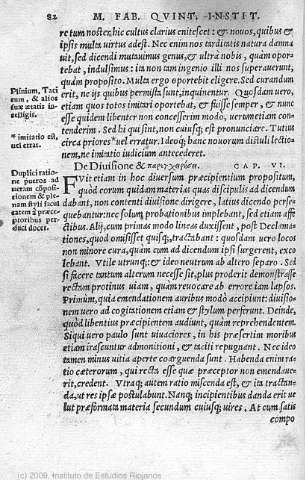 82 M. FAB. QVINT. INSTIT.
retum noster, hic cultus clarius enitescet: & nouos, quibus et
ipsis multa virtus adest. Nec enim nos tarditatis natura damna
uit, sed dicendi mutauimus genus, & ultra nobis, quàm opor-
tebat, indulsimus: ita non tam ingenio illi nos superauerunt,
quàm proposito. Multa ergo oportebit eligere. Sed curandum
erit, ne ijs quibus permista sunt, inquinentur. Quosdam uero,
etiam quos totos imitari oportebat, & fuisse semper, & nunc
esse quidem libenter non concesserim modò, uerumetiam con-
tenderim. Sed hi qui sint, non cuiusq; est pronunciare. Tutius
circa priores uel erratur. Ideoq; hanc nouorum distuli lectio-
nem, ne imitatio iudicium antecederet.
Plinium, Taci
tum, & alios
suæ ætatis in-
telligit.
* imitatio est,
uel errat.
De Diuisione & CAP. VI.
Duplici ratio-
ne pueros ad
uersum
& ple-
nam styli
catem à præce-
ptoribus per-
duci docet.
Fuit etiam in hoc diuersum præcipientium propositum,
quòd eorum quidam materias quas discipulis ad dicendum
dabant, non contenti diuisione dirigere, latius dicendo perse-
quebantur: nec solum probationibus implebant, sed etiam affe-
ctibus. Alij, cum primas modo lineas duxissent, post Declama-
tiones, quod omisisset quisq;, tractabant: quosdam uero locos
non minore cura, quàm cum ad dicendum ipsi surgerent, exco
lebant. Vtile utrunq;: & ideo neutrum ab altero separo. Sed
si facere tantum alterum necesse sit, plus proderit demonstrasse
rectam protinus uiam, quàm reuocare ab errore iam lapsos.
Primùm, quia emendationem auribus modò accipiunt: diuisio-
nem uero ad cogitationem etiam & stylum perferunt. Deinde,
quòd libentius præcipientem audiunt, quàm reprehendentem.
Siqui uero paulo sunt uiuaciores, in his præsertim moribus
etiam irascuntur admonitioni, & taciti repugnant. Nec ideo
tamen minus uitia aperte coarguenda sunt. Habenda enim ra-
tio cæterorum, qui recta esse quæ præceptor non emendaue-
rit, credent. Vtraq; autem ratio miscenda est, & ita tractan-
da, ut res ipsæ postulabunt. Nanq; incipientibus danda erit ue
lut præformata materia secundum cuiusq; uires. At cum satis
compo
(c) 2009. Instituto de Estudios Riojanos